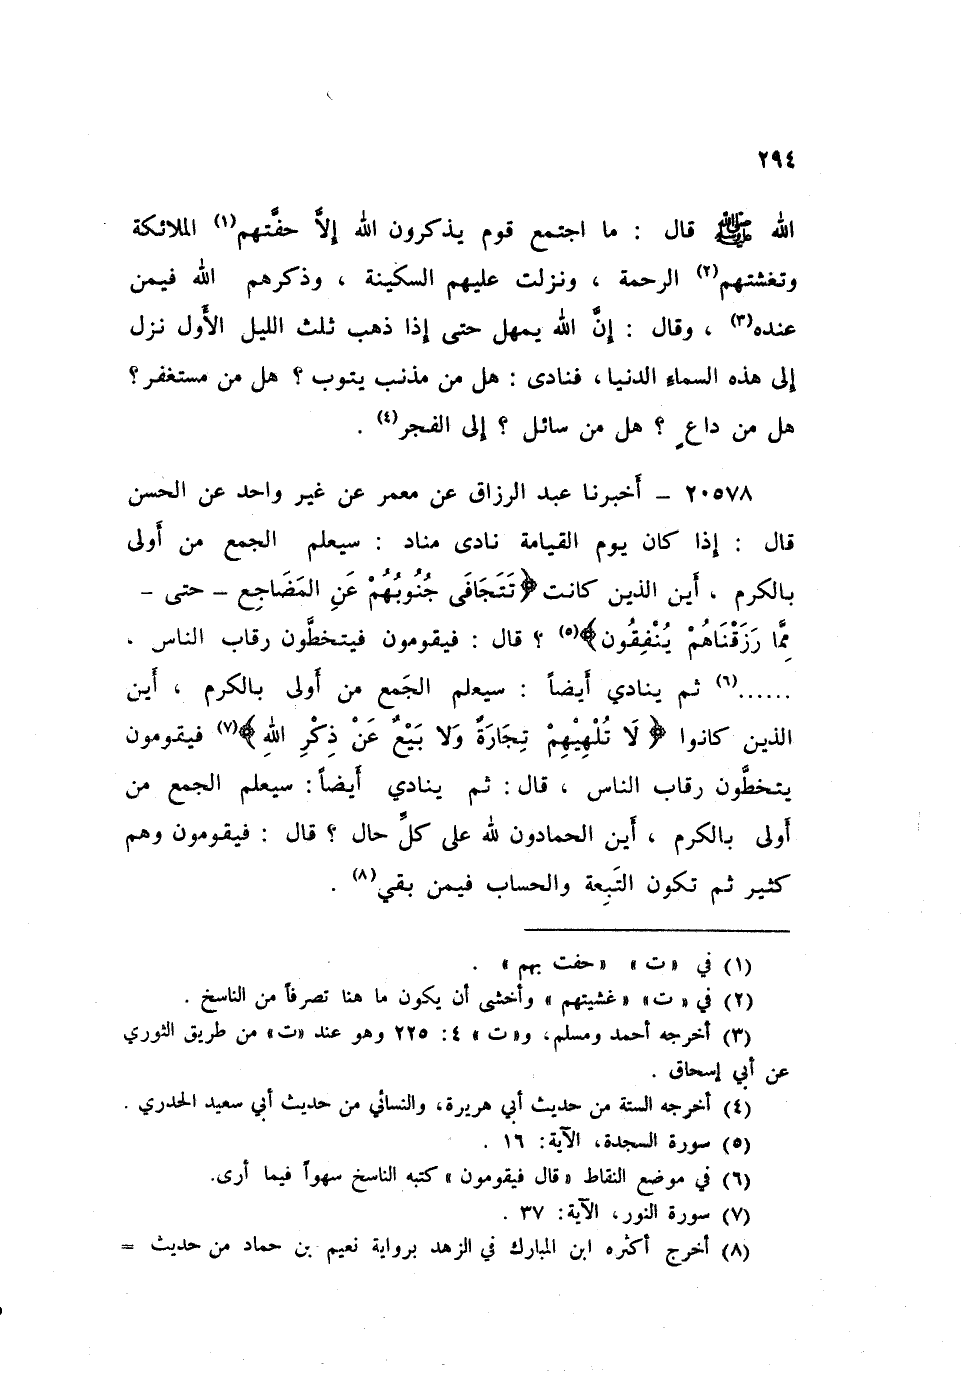 ٢٩٤
الله ﷺ قال : ما اجتمع قوم يذكرون الله إلاَّ حفَّتهم(١) الملائكة
وتغشتهم(٢) الرحمة ، ونزلت عليهم السكينة ، وذكرهم الله فيمن
عنده(٣) ، وقال : إنَّ الله يمهل حتى إذا ذهب ثلث الليل الأَول نزل
إلى هذه السماء الدنيا، فنادى : هل من مذنب يتوب ؟ هل من مستغفر ؟
هل من داعٍ ؟ هل من سائل ؟ إلى الفجر(٤) .
٢٠٥٧٨ – أَخبرنا عبد الرزاق عن معمر عن غير واحد عن الحسن
قال : إذا كان يوم القيامة نادى مناد : سيعلم الجمع من أَولى
بالكرم ، أَين الذين كانت ﴿تَتَجَافَى جُنُوبُهُمْ عَنِ المَضَاجِعِ – حتى –
مِمَّا رَزَقْنَاهُمْ يُنْفِقُون﴾(٥) ؟ قال : فيقومون فيتخطَّون رقاب الناس ،
......(٦) ثم ينادي أَيضاً : سيعلم الجَمع من أَولى بالكرم ، أَين
الذين كانوا ﴿ لَا تُلْهِيْهِمْ تِجَارَةٌ وَلا بَيْعٌ عَنْ ذِكْرِ اللهِ﴾(٧) فيقومون
يتخطَّون رقاب الناس ، قال : ثم ينادي أَيضاً : سيعلم الجمع من
أَولى بالكرم ، أَين الحمادون لله على كلِّ حال ؟ قال : فيقومون وهم
كثير ثم تكون التَبِعة والحساب فيمن بقي(٨) .
(١) في «ت» «حفت بهم» .
(٢) في «ت» «غشيتهم» وأخشى أن يكون ما هنا تصرفاً من الناسخ .
(٣) أخرجه أحمد ومسلم، و«ت» ٤: ٢٢٥ وهو عند «ت» من طريق الثوري
عن أبي إسحاق .
(٤) أخرجه الستة من حديث أبي هريرة، والنسائي من حديث أبي سعيد الخدري .
(٥) سورة السجدة، الآية: ١٦ .
(٦) في موضع النقاط «قال فيقومون» كتبه الناسخ سهواً فيما أرى.
(٧) سورة النور، الآية: ٣٧ .
(٨) أخرج أكثره ابن المبارك في الزهد برواية نعيم بن حماد من حديث =